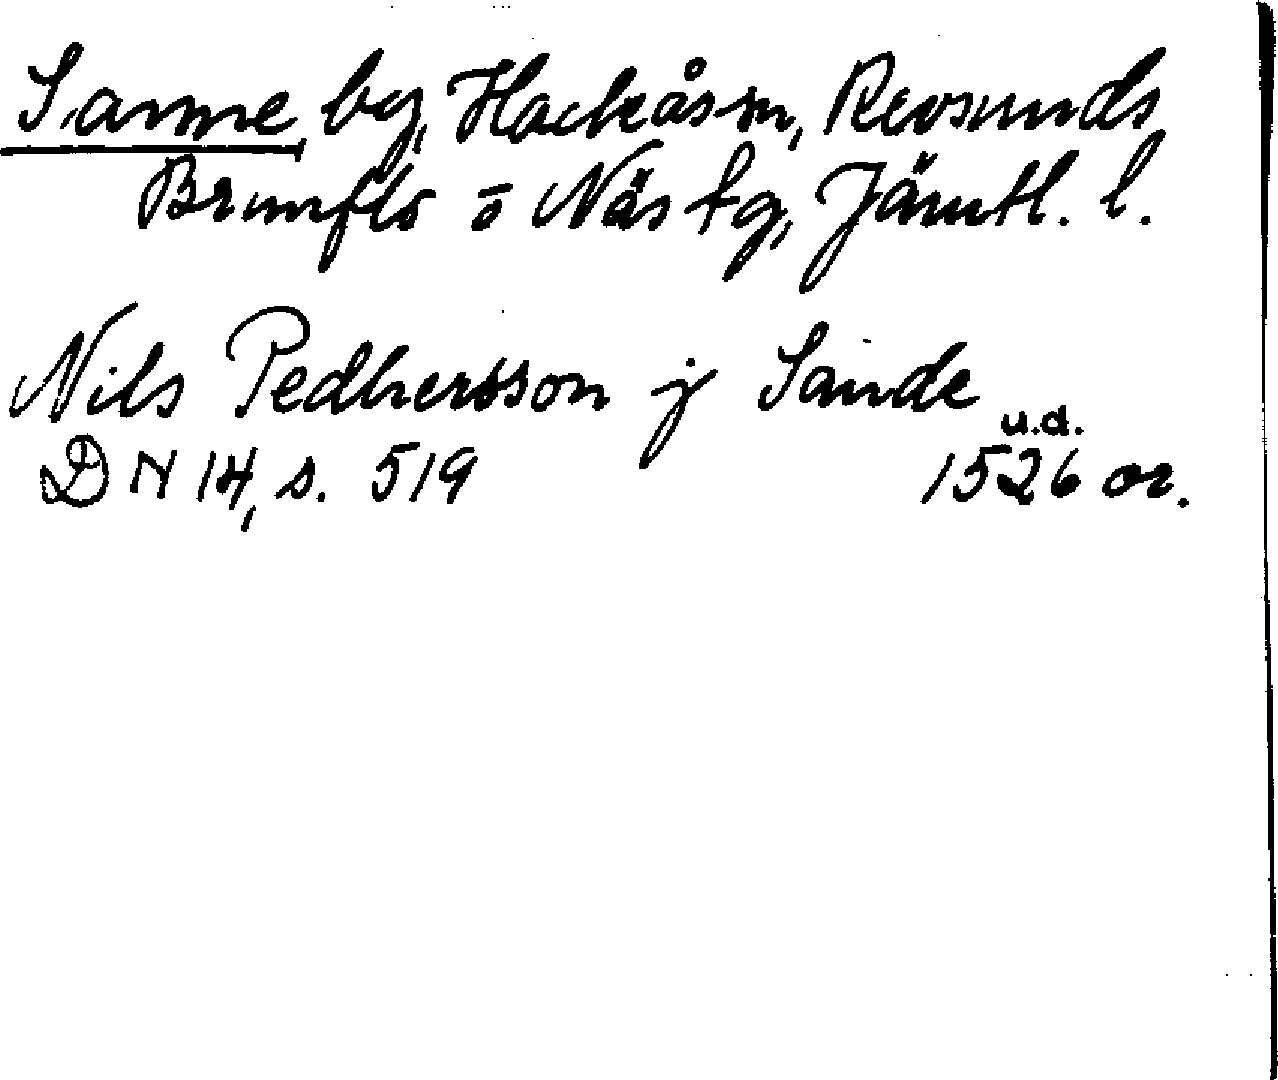 Sanne, by, Hackås sn, Revsunds,
Brunflo o Näs tg, Jämtl. l.
Nils Pedhersson j Sande
u.d.
DN 14, s. 519 1526 or.